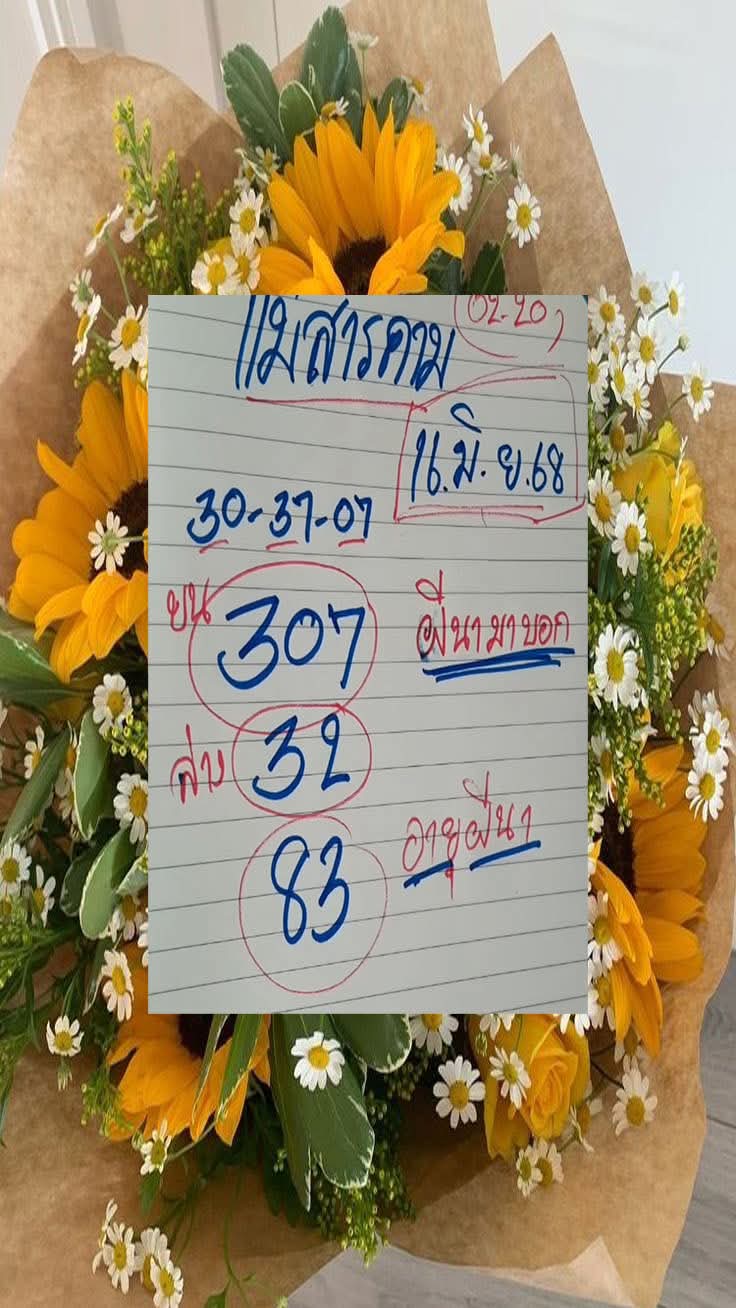 แม่สารคาม
16.มิ.ย.68
30-37-07
บน 307 ผีนามาบอก
ล่าง 32
83 อายุผีนา